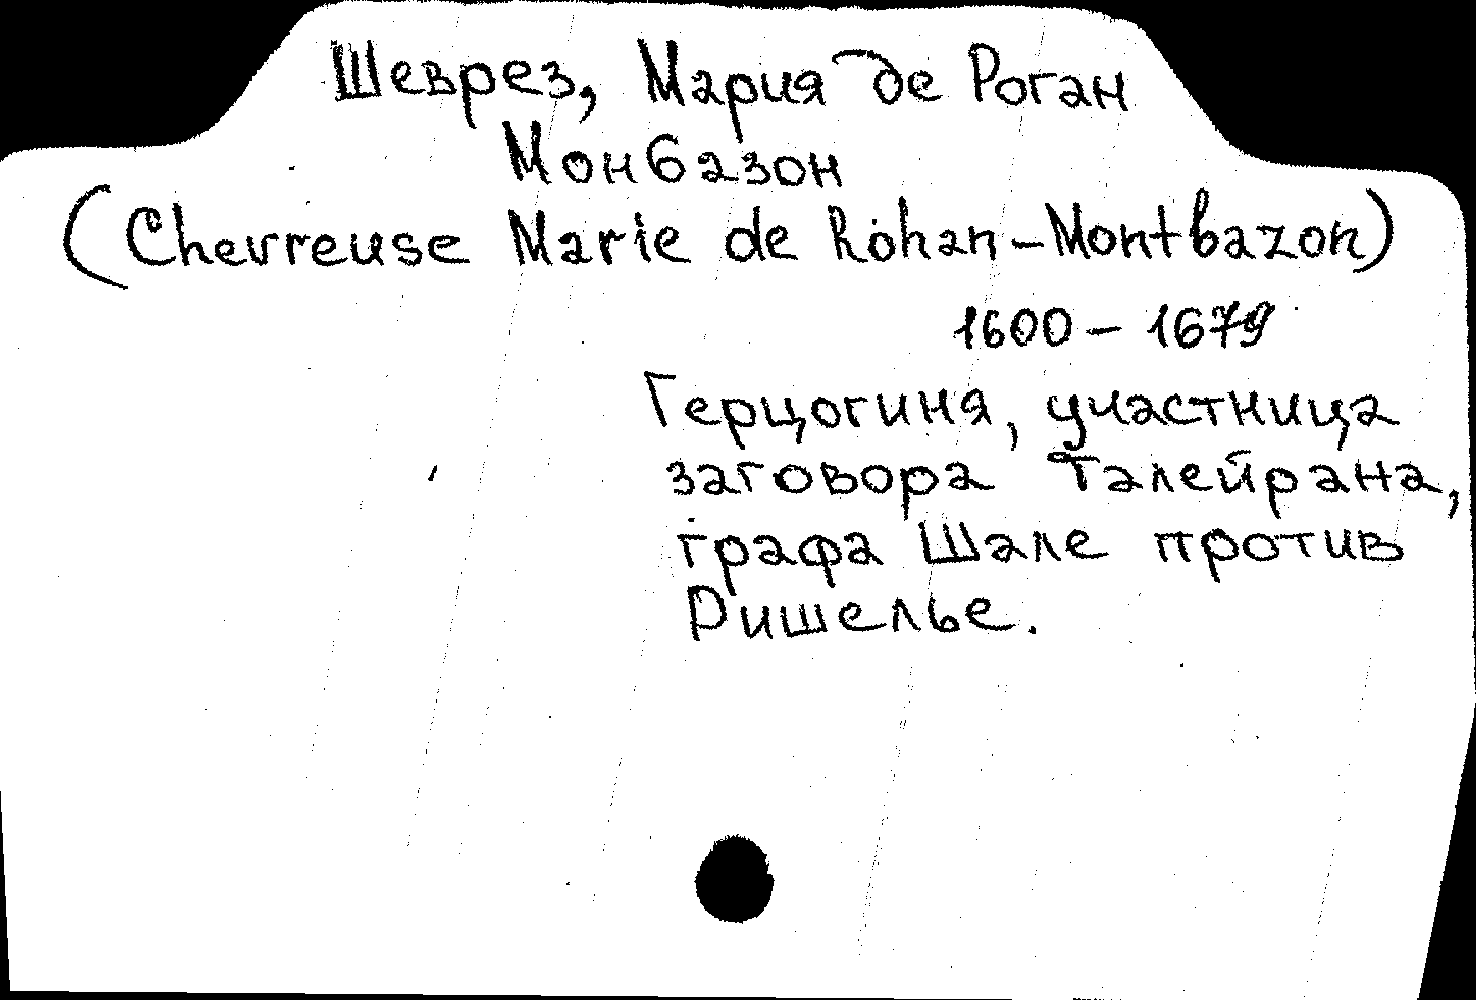 Шеврез, Мария де Роган
Монбазон
(Chevreuse Marie de Rohan-Montbazon)
1600 - 1679
Герцогиня, участница
заговора Талейрана,
графа Шале против
Ришелье.